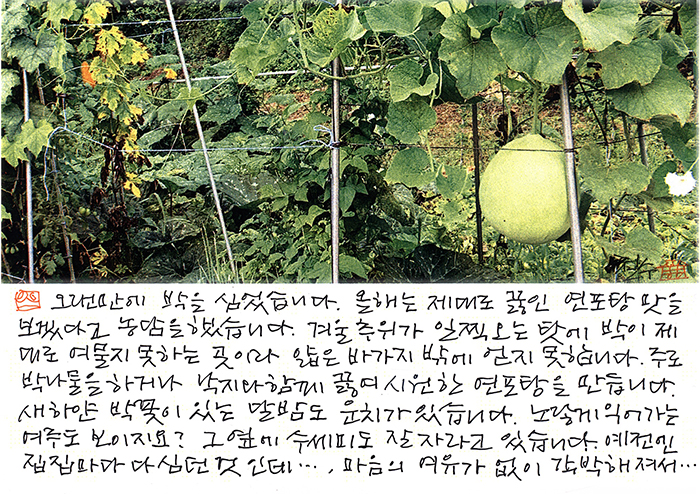 오랜만에 박을 심었습니다. 올해는 제대로 끓인 연포탕 맛을
보겠다고 농담을 했습니다. 겨울추위가 일찍오는 탓에 박이 제
대로 여물지 못하는 곳이라 얇은 바가지 밖에 얻지 못합니다. 주로
박나물을하거나 낙지와함께 끓여 시원한 연포탕을 만듭니다.
새하얀 박꽃이 있는 달밤도 운치가있습니다. 노랗게익어가는
여주도 보이지요? 그옆에 수세미도 잘자라고 있습니다. 예전엔
집집마다 다심던것인데…, 마음의 여유가 없이 각박해져서…